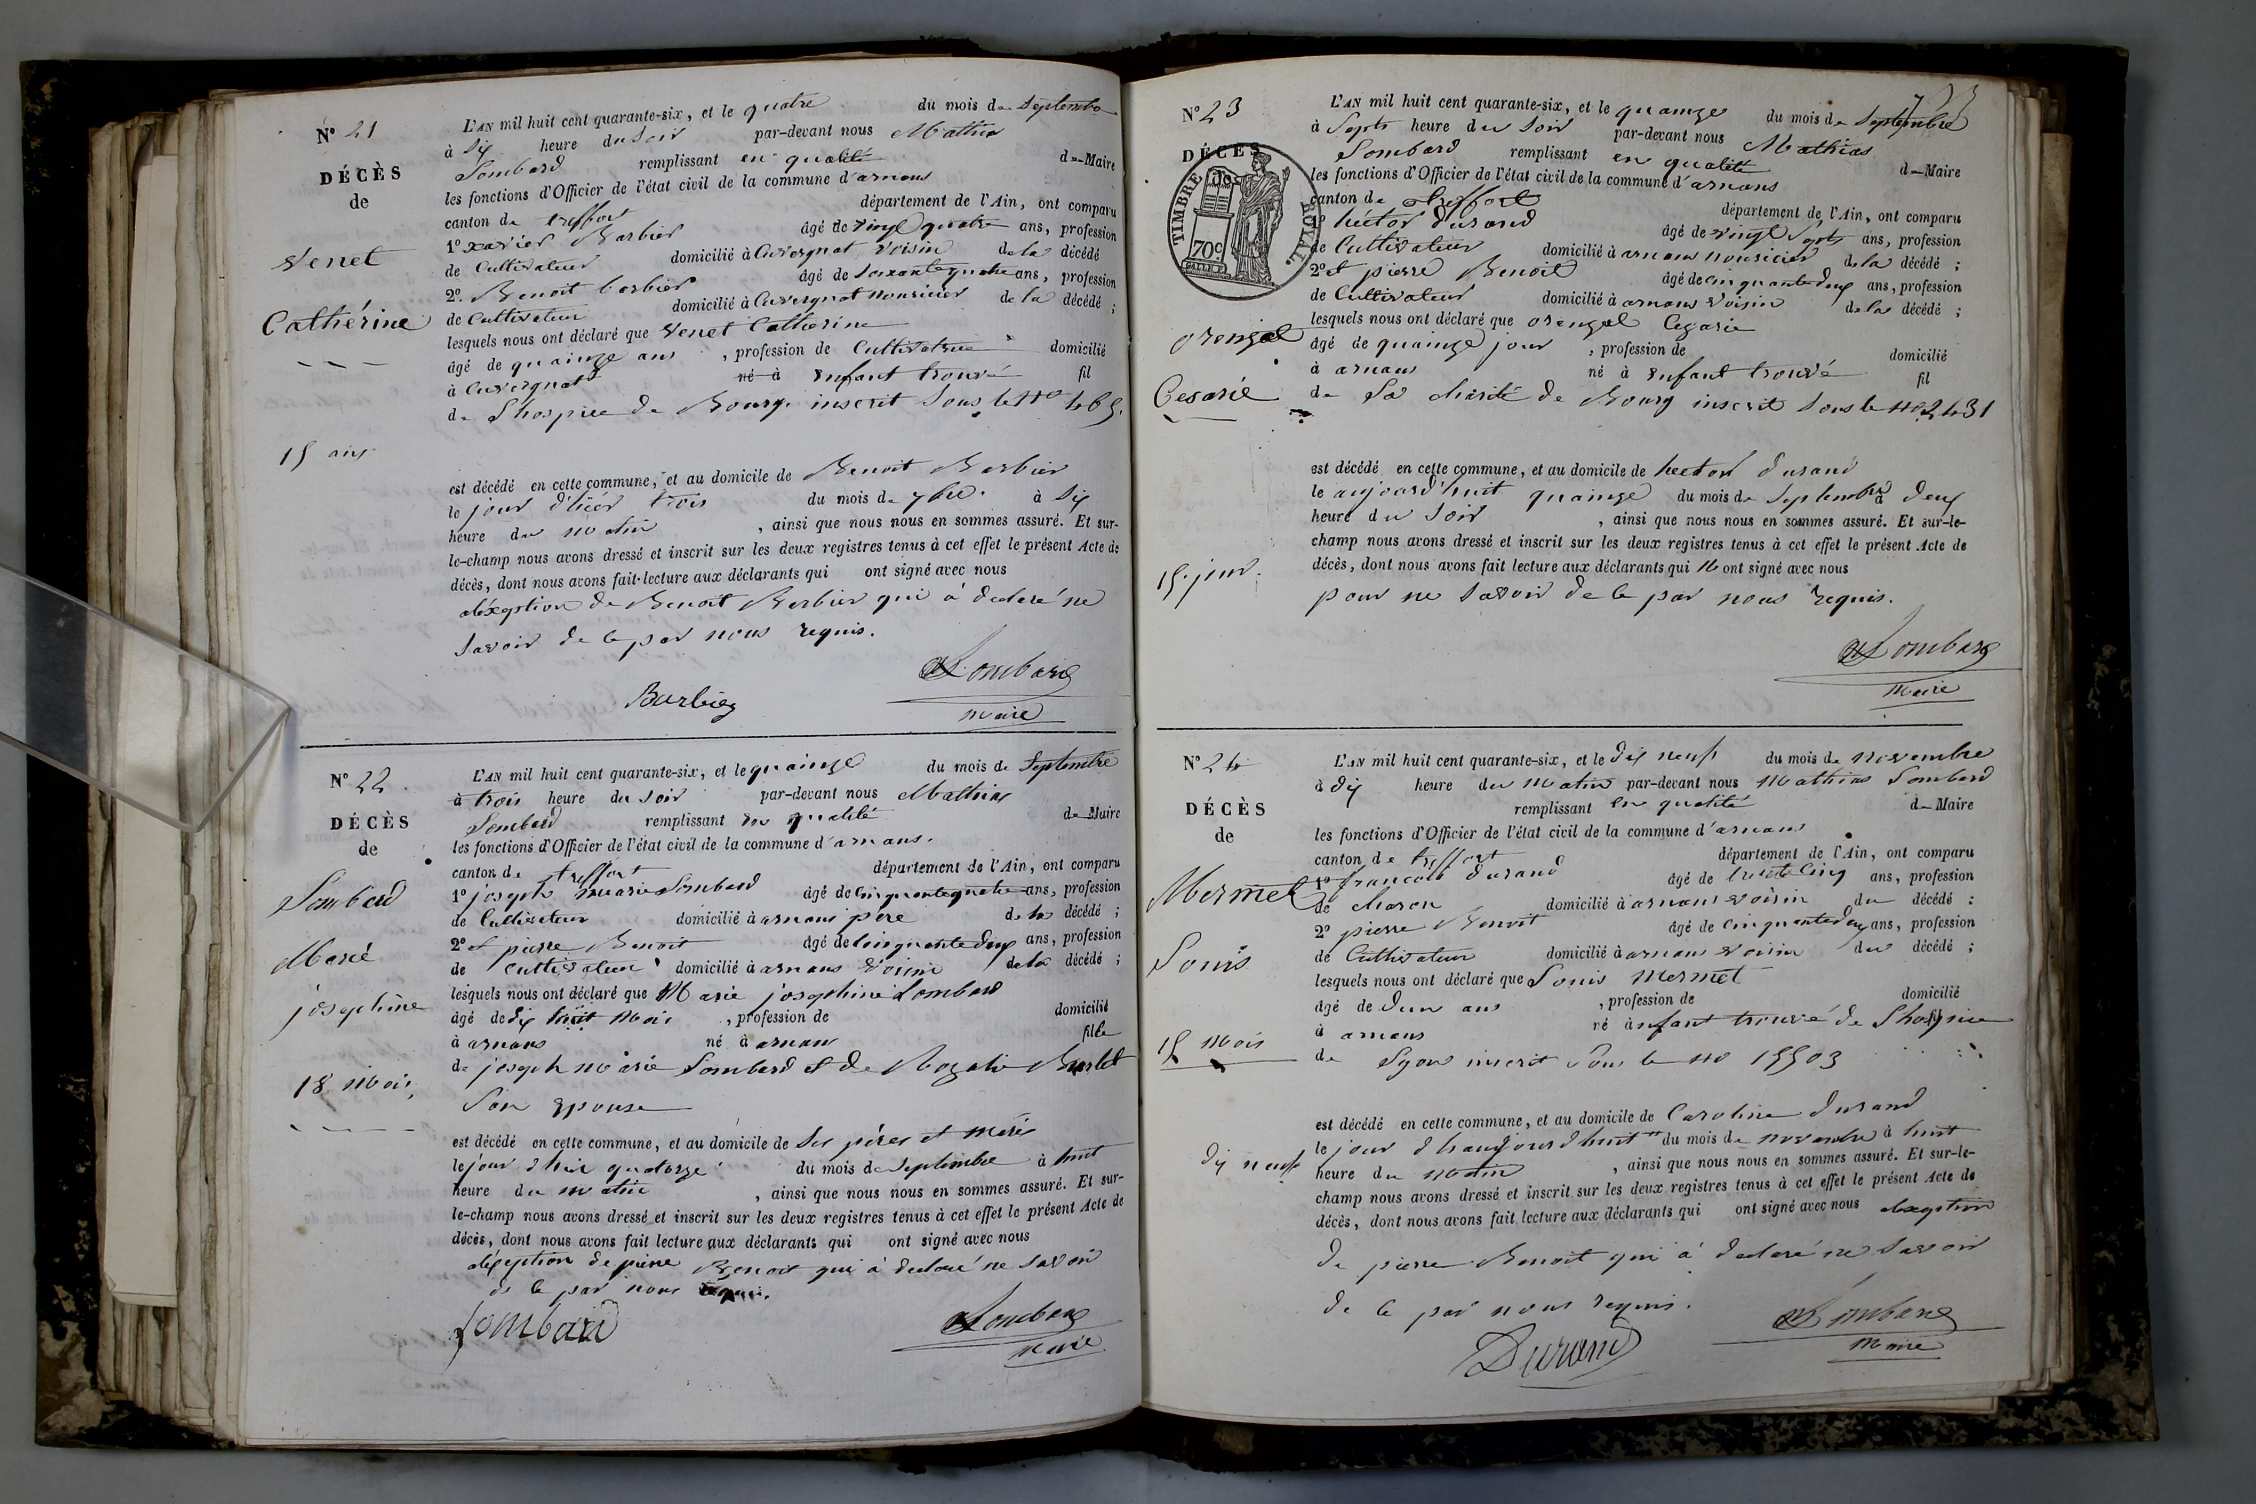 N° 21
DÉCÈS
de
Venet
Catherine
15 ans
L'AN mil huit cent quarante-six, et le quatre du mois de Septembre
à Six heure du Soir par-devant nous Mathias
Lombard remplissant en qualité de Maire
les fonctions d'Officier de l'état civil de la commune d'arnans
canton de treffort département de l'Ain, ont comparu
1° xavier Barbier âgé de vingt quatre ans, profession
de Cultivateur domicilié à Cuvergnat voisin de la décédé
2°. Benoit barbier âgé de Soixante quatre ans, profession
de Cultivateur domicilié à Cuvergnat nouricier de la décédé ;
lesquels nous ont déclaré que Venet Catherine
âgé de quainze ans , profession de Cultivatrice domicilié
à Cuvergnat né à Enfant trouvé fil
de L'hospice de Bourg inscrit Sous le N°
est décédé en cette commune, et au domicile de Benoit Barbier
le jour d'hier trois du mois de 7bre. à Six
heure du matin , ainsi que nous nous en sommes assuré. Et sur-
le-champ nous avons dressé et inscrit sur les deux registres tenus à cet effet le présent Acte de
décès, dont nous avons fait lecture aux déclarants qui ont signé avec nous
aléxeption de Benoit Barbier qui à declaré ne
Savoir de ce par nous requis.
Barbier
Lombard
maire
N° 22
DÉCÈS
de
Lombard
Marie
joséphine
18 mois
L'AN mil huit cent quarante-six, et le quainze du mois de Septembre
à trois heure du Soir par-devant nous Mathias
Lombard remplissant en qualité de Maire
les fonctions d'Officier de l'état civil de la commune d'arnans.
canton de treffort département de l'Ain, ont comparu
1° joseph marie Lombard âgé de cinquante quatre ans, profession
de Cultivateur domicilié à arnans père de la décédé ;
2° et pierre Benoit âgé de cinquante deux ans, profession
de cultivateur domicilié à arnans voisin de la décédé ;
lesquels nous ont déclaré que Marie joséphine Lombard
âgé de dix huit mois , profession de domicilié
à arnans né à arnans fille
de joseph marie Lombard et de Rozalie
Son epouse
est décédé en cette commune, et au domicile de Ses pères et mères
le jour d'hier quatorze du mois de Septembre à huit
heure du matin , ainsi que nous nous en sommes assuré. Et sur-
le-champ nous avons dressé et inscrit sur les deux registres tenus à cet effet le présent Acte de
décès, dont nous avons fait lecture aux déclarants qui ont signé avec nous
aléxeption de pierre Benoit qui à declaré ne savoir
de ce par nous requis.
Lombard
Lombard
maire
N° 23
DÉCÈS
TIMBRE ROYAL.
70c.
orengel
Cesarie
15 jour.
L'AN mil huit cent quarante-six, et le quainze du mois de Septembre
à Septs heure du Soir par-devant nous Mathias
Lombard remplissant en qualité de Maire
les fonctions d'Officier de l'état civil de la commune d'arnans
canton de treffort département de l'Ain, ont comparu
1° héctor durand âgé de vingt Septs ans, profession
de Cultivateur domicilié à arnans nouricier de la décédé ;
2° et pierre Benoit âgé de cinquante deux ans, profession
de Cultivateur domicilié à arnans voisin de la décédé ;
lesquels nous ont déclaré que orengel Cezarie
âgé de quainze jour , profession de domicilié
à arnans né à Enfant trouvé fil
de La charité de Bourg inscrit Sous le no 2431
est décédé en cette commune, et au domicile de hector durand
le aujourd'huit quainze du mois de Septembre à deux
heure du Soir , ainsi que nous nous en sommes assuré. Et sur-le-
champ nous avons dressé et inscrit sur les deux registres tenus à cet effet le présent Acte de
décès, dont nous avons fait lecture aux déclarants qui N ont signé avec nous
pour ne Savoir de ce par nous requis.
Lombard
maire
N° 24
DÉCÈS
de
Mermet
Louis
15 mois
dix neuf
L'AN mil huit cent quarante-six, et le dix neuf du mois de novembre
à dix heure du matin par-devant nous Mathias Lombard
remplissant en qualité de Maire
les fonctions d'Officier de l'état civil de la commune d'arnans
canton de treffort département de l'Ain, ont comparu
1° francois durand âgé de trente cinq ans, profession
de charon domicilié à arnans voisin du décédé ;
2° pierre Benoit âgé de cinquante deux ans, profession
de Cultivateur domicilié à arnans voisin du décédé ;
lesquels nous ont déclaré que Louis Mermet
âgé de dun ans , profession de domicilié
à arnans né à enfant trouvé de Lhospice
de Lyon inscrit Sous le no 15503
est décédé en cette commune, et au domicile de Caroline durand
le jour d haujourdhuit du mois de novembre à huit
heure du matin , ainsi que nous nous en sommes assuré. Et sur-le-
champ nous avons dressé et inscrit sur les deux registres tenus à cet effet le présent Acte de
décès, dont nous avons fait lecture aux déclarants qui ont signé avec nous alexeption
de pierre Benoit qui à declaré ne Savoir
de ce par nous requis.
Durand
Lombard
maire